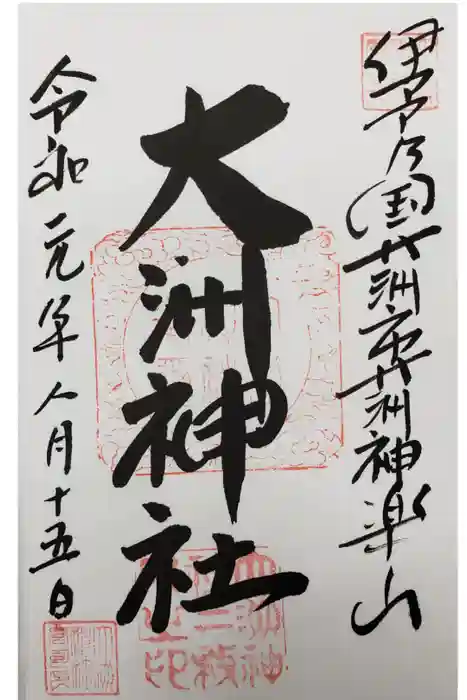 伊予乃国大洲市大洲神楽山
大洲神社
令和元年八月十五日